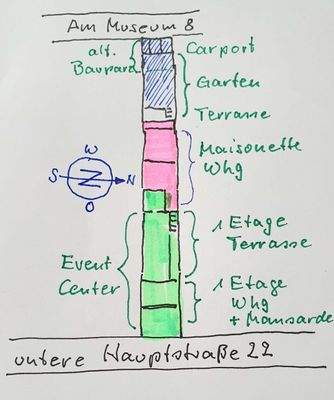 Am Museum 8
alt.
Bauparz.
Carport
Garten
Terrasse
Maisonette
Whg
W
S
N
O
1 Etage
Terrasse
Event
Center
1 Etage
Whg
+ Mansarde
untere Hauptstraße 22